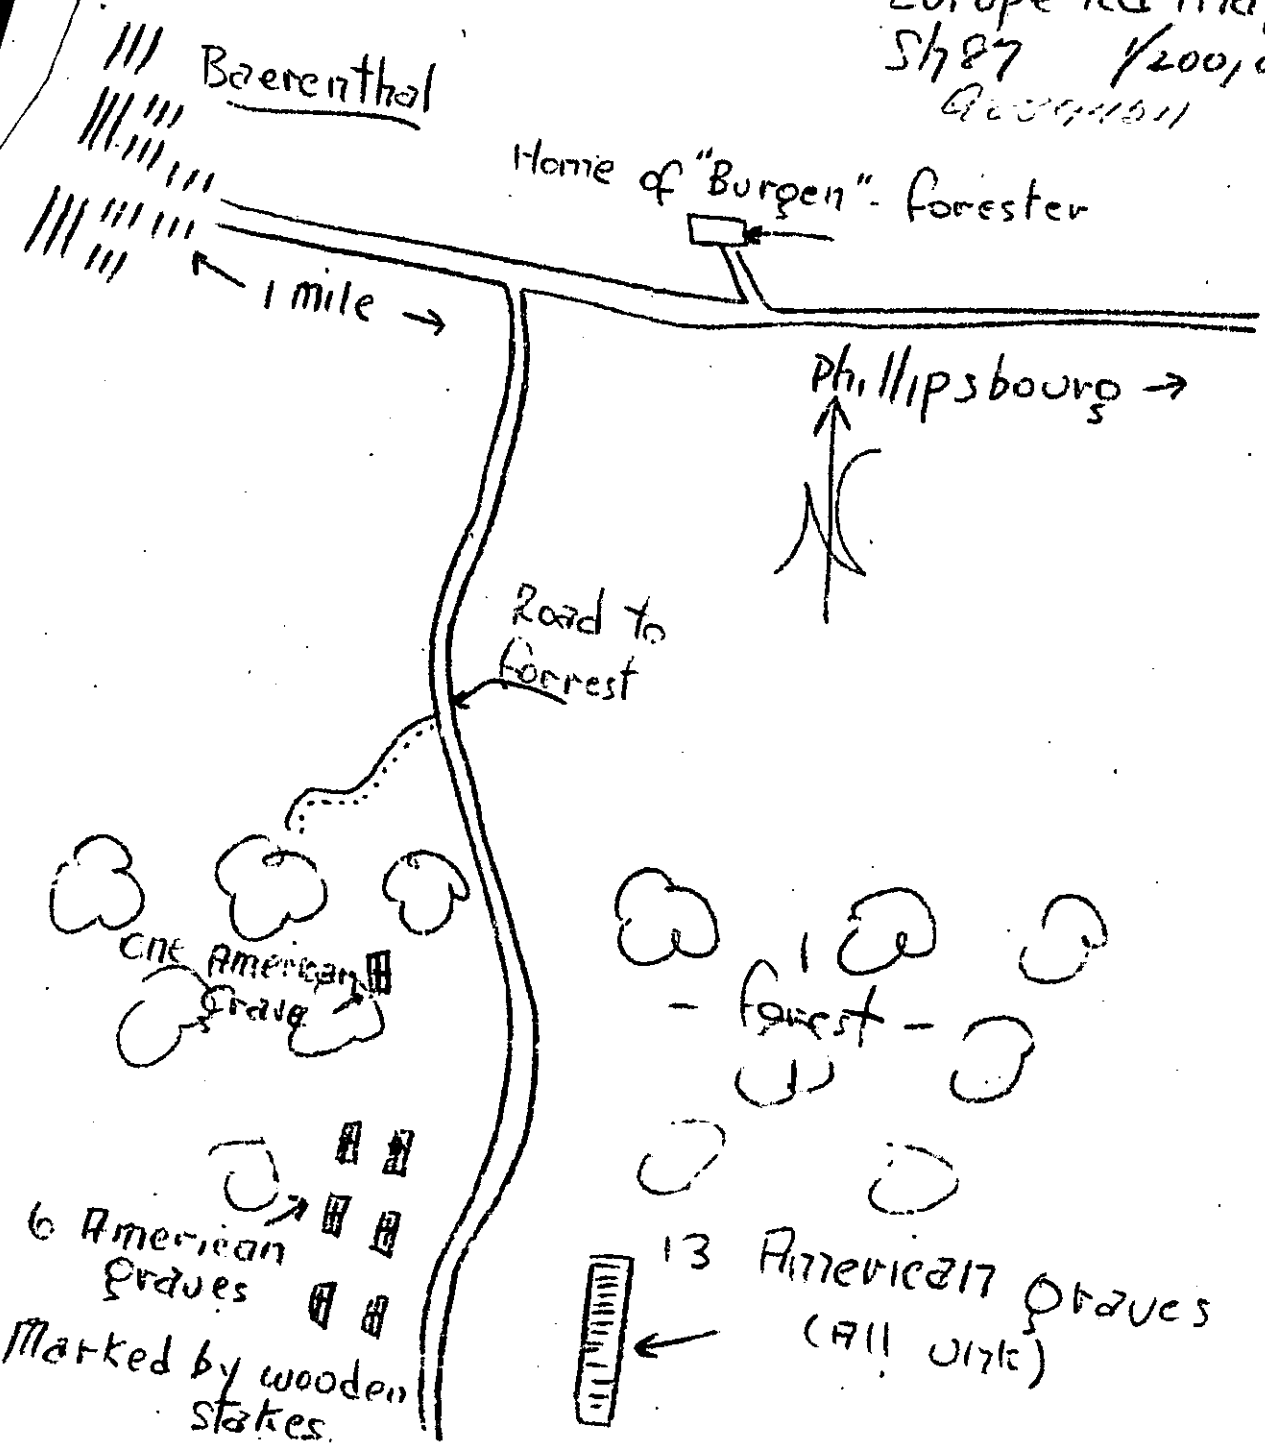 Europe
Sh 87 1/200,
Baerenthal
Home of "Burgen" - forester
1 mile
Phillipsbourg
N
Road to
forrest
One American
Grave
- forest -
6 American
graves
Marked by wooden
stakes.
13 American graves
(All Unk)